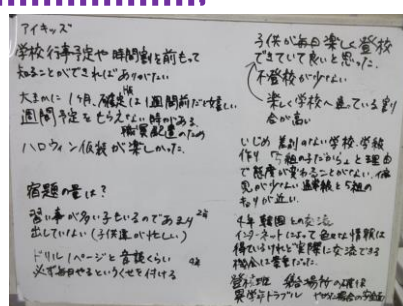 アイキッズ
学校行事予定や時間割を前もって
知ることができればありがたい
大まかに1ヶ月、確定は1週間前だと嬉しい
週間予定をもらえない時がある。
職員配置のため
ハロウィン仮装が楽しかった。
宿題の量は？
習い事が多い子もいるのであまり
出していない(子供達が忙しい)
ドリル1ページと音読くらい
必ず毎日やるというくせを付ける
子供が毎日楽しく登校
できていて良いと思った。
不登校が少ない
楽しく学校へ通っている割
合が高い
いじめ 差別のない学校、学級
作り 「5組の子だから」と理由
で態度が変わることがない。偏
見が少ない 通常級と5組の
キョリが近い。
4年 韓国との交流
インターネットによって色々な情報は
得ているけれど実際に交流できる
機会は貴重だった。
登校班 集合場所の確保
異学年トラブル